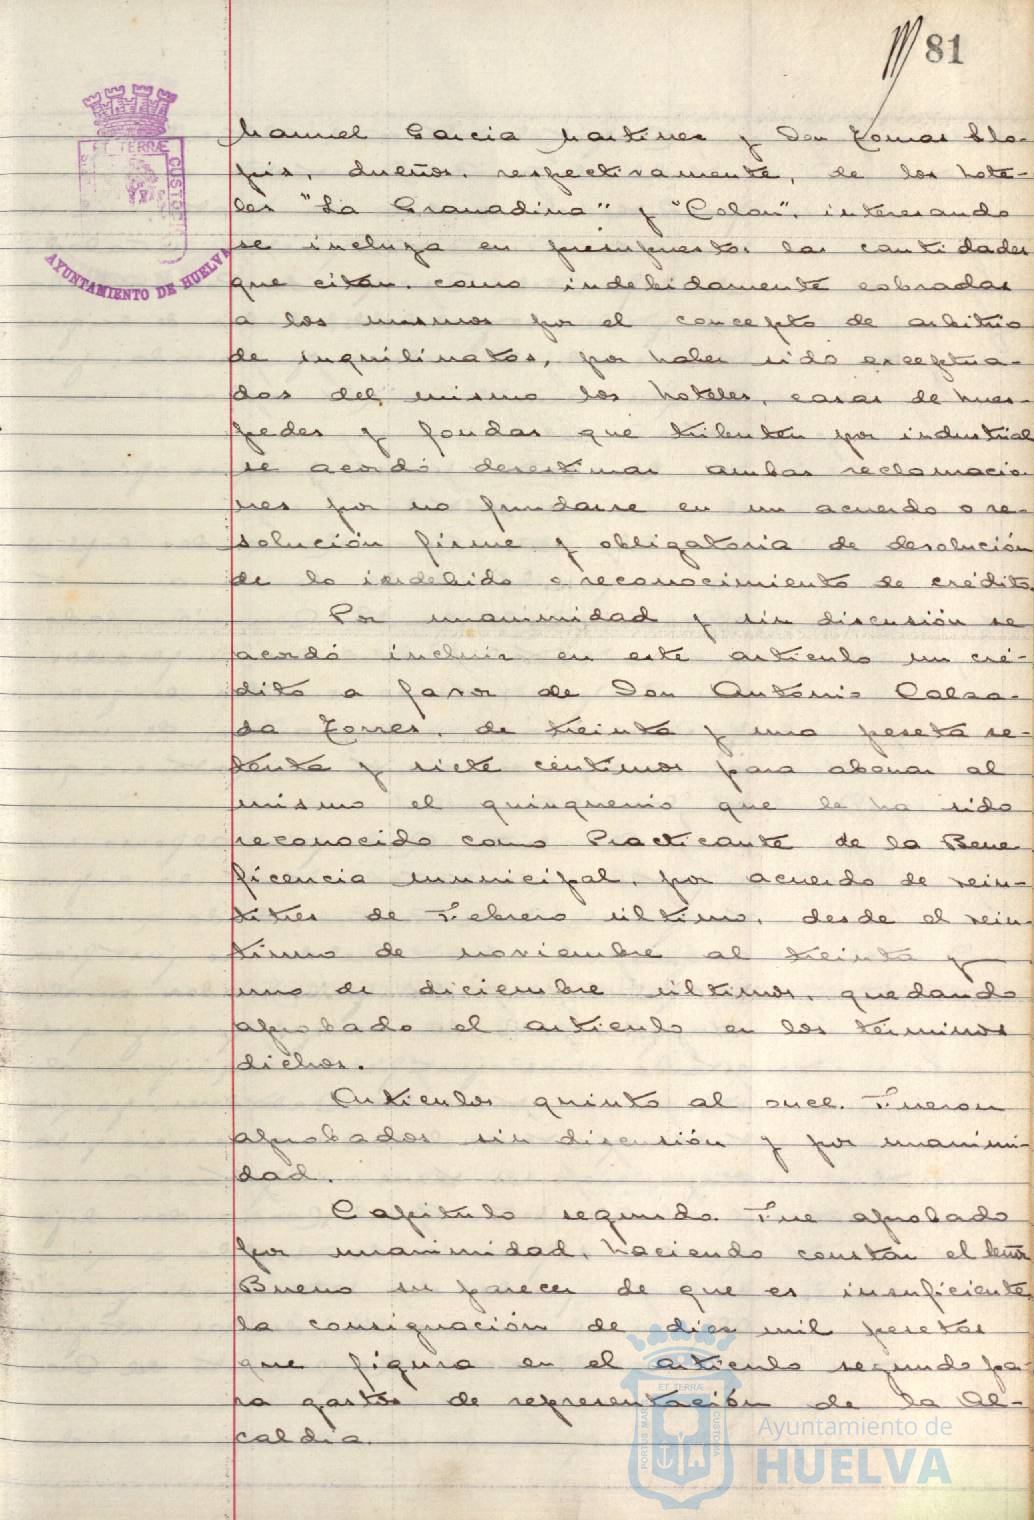 81
ET TERRÆ CUSTO
AYUNTAMIENTO DE HUELVA
Manuel Garcia Martinez y Don Tomas Llo-
pis, dueños, respectivamente, de los hote-
les "La Granadina" y "Colon", interesando
se incluya en presupuestos las cantidades
que citan, como indebidamente cobradas
a los mismos por el concepto de arbitrio
de inquilinatos, por haber sido exceptua-
dos del mismo los hoteles, casas de hues-
pedes y fondas que tributen por industrial
se acordó desestimar ambas reclamacio-
nes por no fundarse en un acuerdo o re-
solución firme y obligatoria de devolución
de lo indebido o reconocimiento de crédito.
Por unanimidad y sin discusión se
acordó incluir en este articulo un cré-
dito a favor de Don Antonio Calza-
da Torres, de treinta y una peseta se-
tenta y siete céntimos para abonar al
mismo el quinquenio que le ha sido
reconocido como Practicante de la Bene
ficencia municipal, por acuerdo de vein-
titres de Febrero último, desde el vein-
tiuno de noviembre al treinta y
uno de diciembre últimos, quedando
aprobado el articulo en los términos
dichos.
Articulos quinto al once. Fueron
aprobados sin discusión y por unanimi-
dad.
Capitulo segundo. Fue aprobado
por unanimidad, haciendo constar el Señor
Bueno su parecer de que es insuficiente
la consignación de diez mil pesetas
que figura en el articulo segundo pa-
ra gastos de representación de la Al-
caldia.
ET TERRÆ
PORTUS MARIS
CUSTODIA
Ayuntamiento de
HUELVA